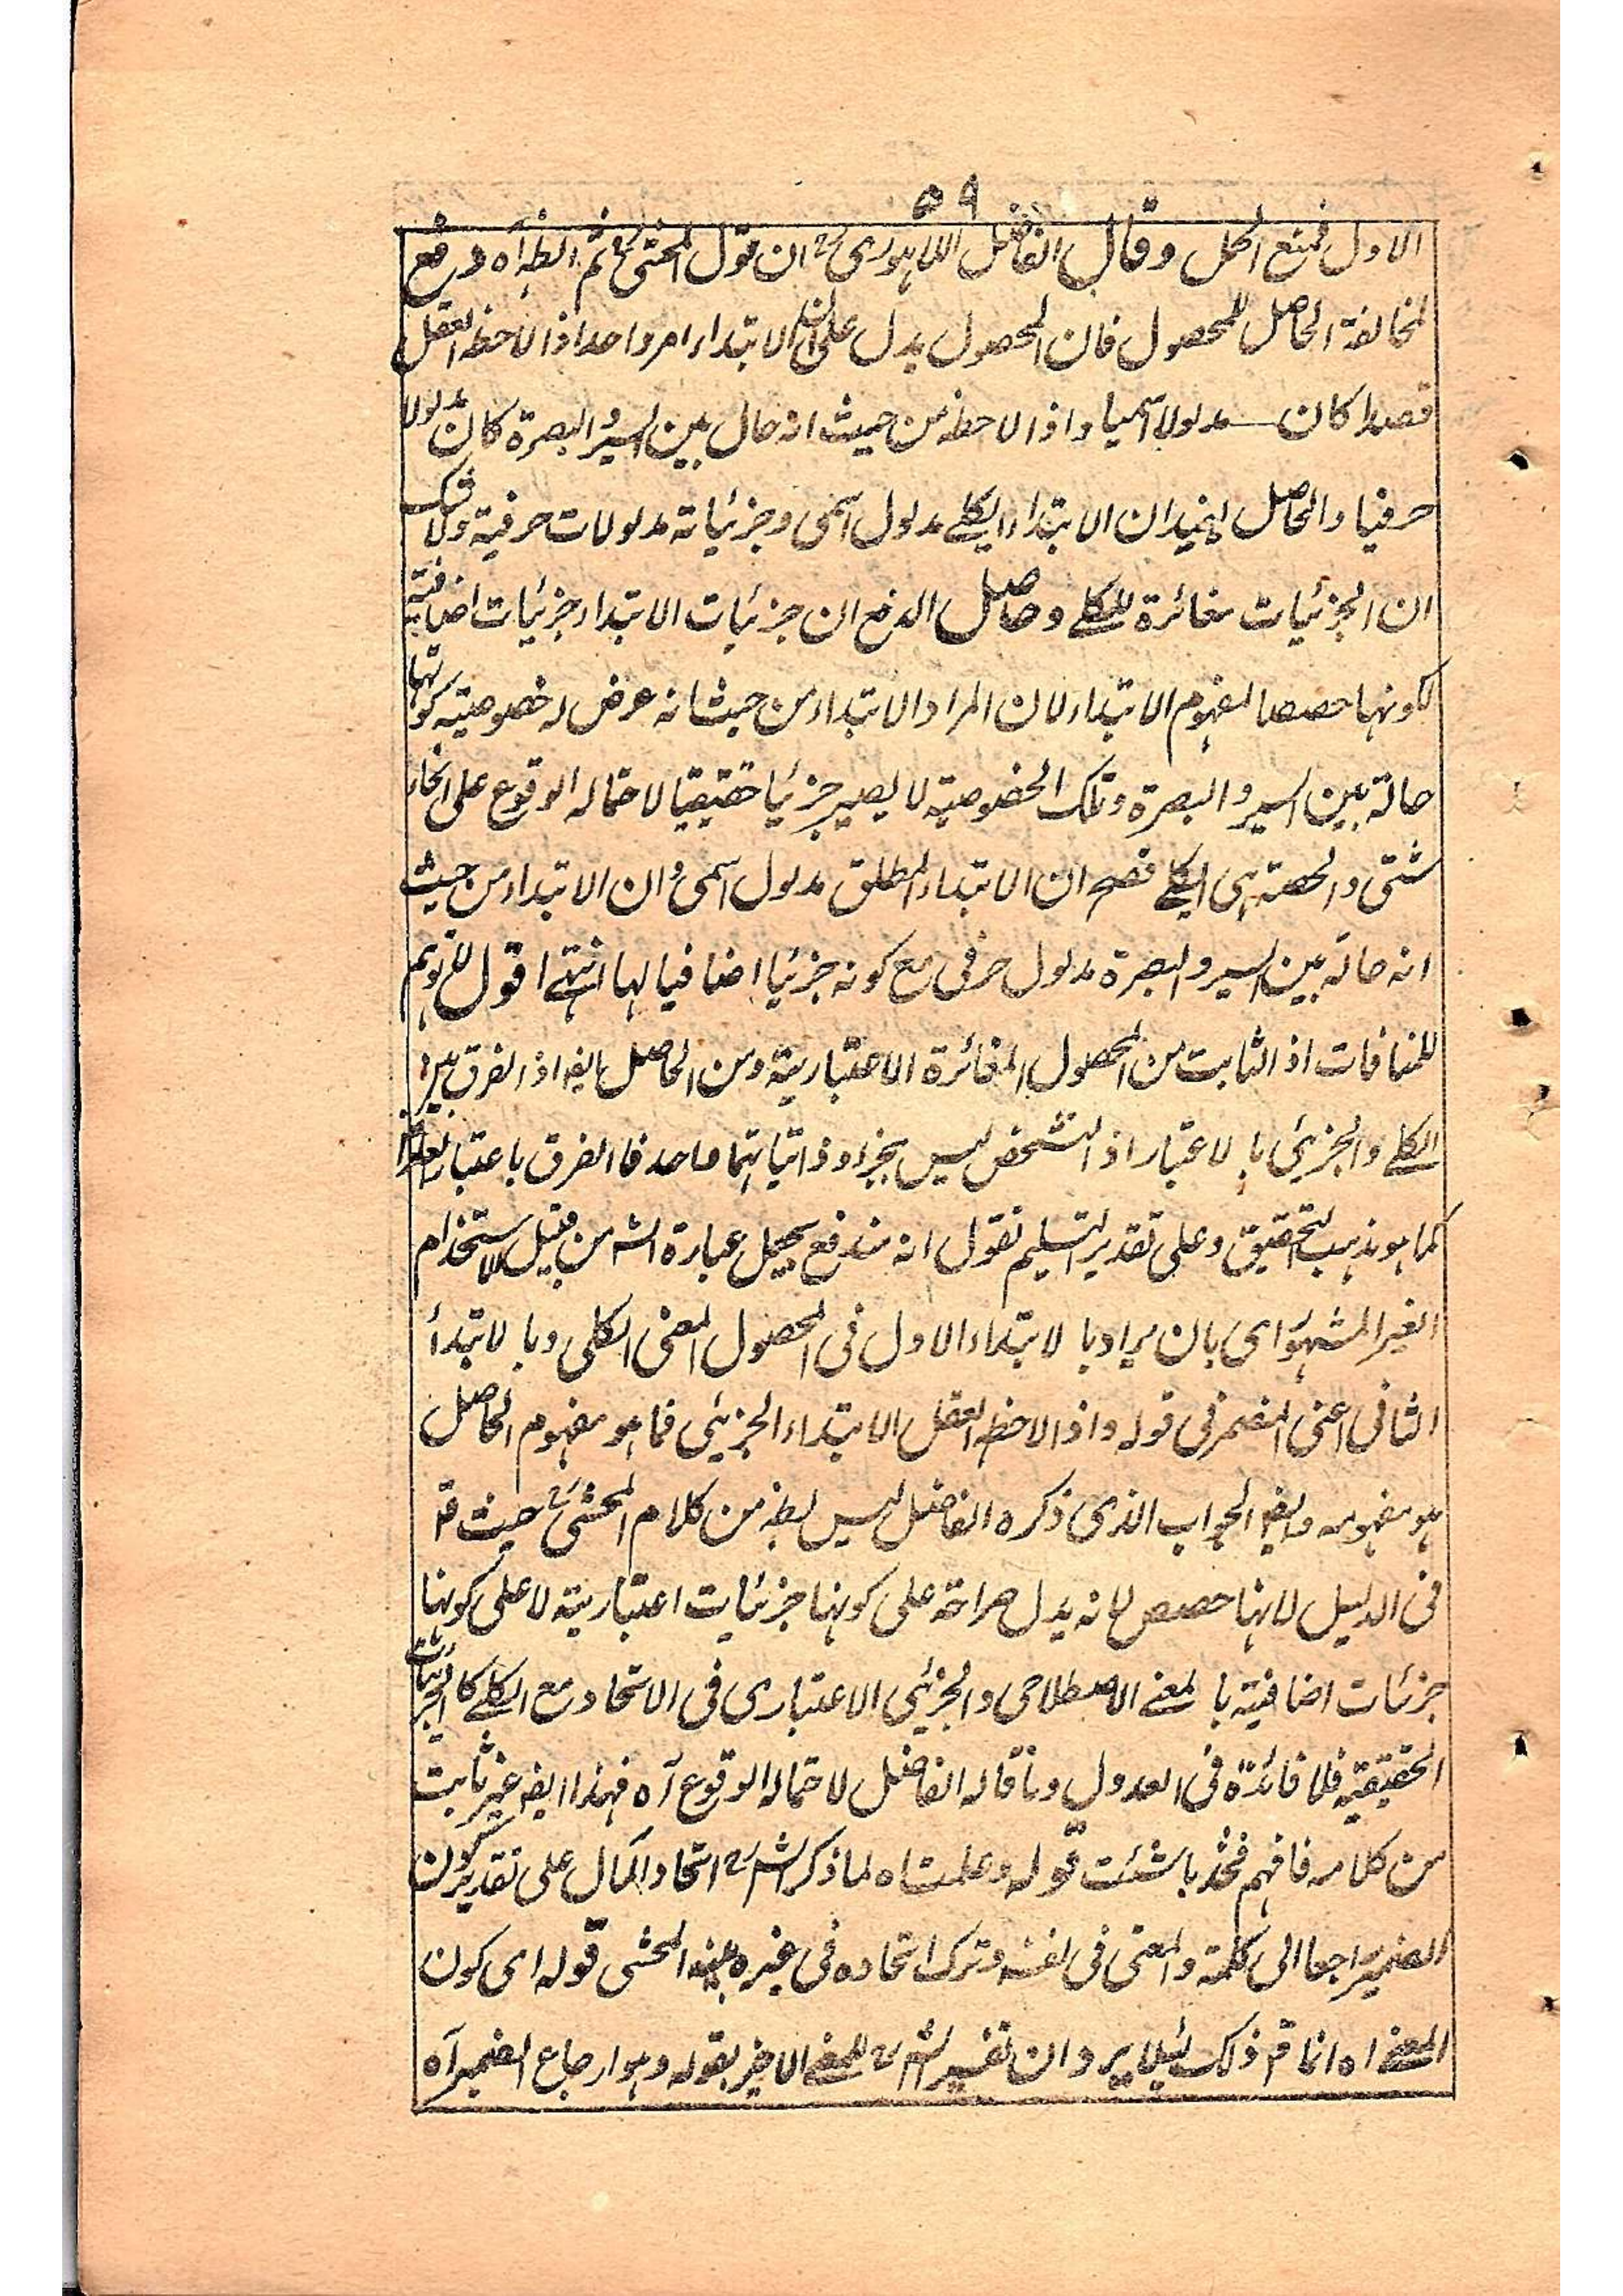 ٥٩
الاول فمنع الحمل وقال الفاضل اللاہوری رح ان قول المحشی رح ثم الظہ آہ دفع
لمخالفة الحاصل للمحصول فان المحصول يدل على ان الابتداء امر واحد اذا لاحظه العقل
قصدا كان مدلولا اسميا واذا لاحظه من حيث انه حال بين السير والبصرة كان مدلولا
حرفيا والحاصل يفيد ان الابتداء الكلے مدلول اسمی وجزئياته مدلولات حرفية ولا شك
ان الجزئيات مغائرة للكلے وحاصل الدفع ان جزئيات الابتداء جزئيات اضافية
لكونها حصصا لمفهوم الابتداء لان المراد الابتداء من حيث انه عرض له خصوصية كونها
حالة بين السير والبصرة وتلك الخصوصية لا يصير جزئيا حقيقيا لاحتماله الوقوع على انحاء
شتى والحصة ہی الكلے فصح ان الابتداء المطلق مدلول اسمی وان الابتداء من حيث
انه حالة بين السير والبصرة مدلول حرفی مع كونه جزئيا اضافيا لها انتہے اقول لا توہم
للمنافات اذ الثابت من المحصول المغائرة الاعتبارية ومن الحاصل ايضہ اذ الفرق بين
الكلے والجزئی بالاعتبار اذ التشخص ليس بجزء وذاتياتهما واحد فالفرق باعتبار
كما ہو مذہب التحقيق وعلى تقدير التسليم نقول انه مندفع بجعل عبارة الشہ من قبيل الاستخدام
الغير المشہور ای بان يراد بالابتداء الاول فی المحصول المعنى الكلی وبالابتدأ
الثانی اعنی المضمر فی قوله واذا لاحظه العقل الابتداء الجزئی فما ہو مفہوم الحاصل
ہو مفہومه وايضہ الجواب الذی ذكره الفاضل ليس يظہ من كلام المحشی رح حيث قہ
فی الدليل لانہا حصص لہ لانه يدل صراحة على كونہا جزئيات اعتبارية لا على كونہا
جزئيات اضافية بالمعنے الاصطلاحی والجزئی الاعتباری فی الاتحاد مع الكلے كالجزئيات
الحقيقية فلا فائدة فی العدول وما قاله الفاضل لاحتماله الوقوع آہ فہذا ايضہ غير ثابت
من كلامه فافہم فخذ ما شئت قوله وعلمت اہ لما ذكر الشہ رح اتحاد المآل على تقدير كون
الضمير راجعا الى كلمة والمعنى فی نفسه وترك اتحاده فی غيره بينه المحشی قوله ای كون
المعنے اہ انما قہ ذلك لئلا يرد ان تفسير الشہ رح للمعنے الاخير بقوله وہو ارجاع الضمير آہ